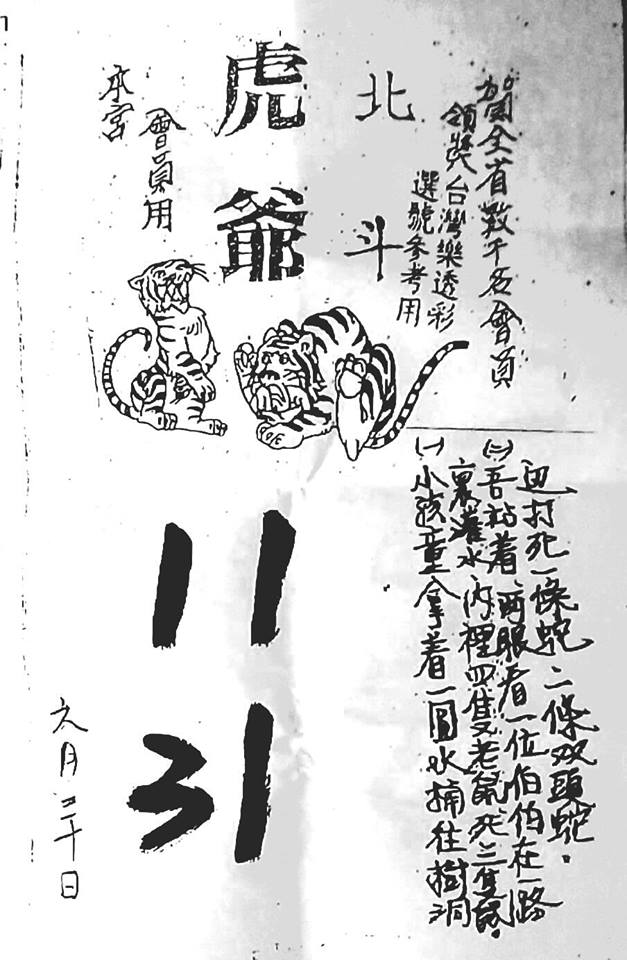 賀全省數千名會員
領獎台灣樂透彩
選號參考用
北斗
虎爺
本宮
會員用
(一)小孩童拿着一圓水桶往樹洞
裏灌水,內裡四隻老鼠死三隻鼠.
(二)吾站着、兩眼看一位伯伯在一路
边打死一條蛇、二條双頭蛇.
11
31
六月二十日